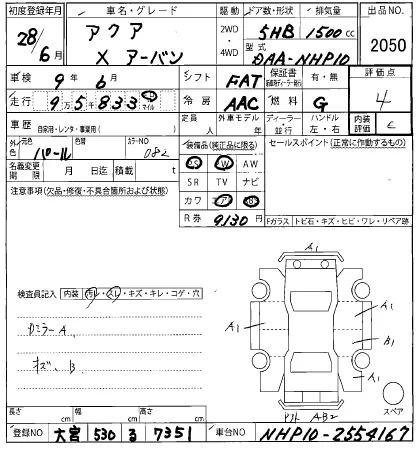 初度登録年月 車名・グレード 駆動 ドア数・形状 排気量 出品NO
28/6月 アクア X アーバン 2WD・4WD 5HB 1500cc 2050
型式 DAA-NHP10
車検 9年6月 シフト FAT 保証書 有・無 評価点
走行 9万5千833 km マイル 冷房 AAC 燃料 G 4
車歴 自家用・レンタ・事業用( ) 定員 人 外車モデル 年 ディーラー・並行 ハンドル 左・右 内装評価 C
外色 元色 パール 色替 カラーNO 082 装備品(純正品に限る) セールスポイント(正常に作動するもの)
PS PW AW
名義変更期限 月 日迄 積載 t SR TV ナビ
注意事項(欠品・修復・不具合箇所および状態) カワ エア
R券 9130円 Fガラス トビ石・キズ・ヒビ・ワレ・リペア跡
A1
検査員記入 内装 汚レ・スレ・キズ・キレ・コゲ・穴
A1 A1
カミラーA B1
キズ、B A1
AB2 スペア
長さ cm 幅 cm 高さ cm
登録NO 大宮 530 る 7351 車台NO NHP10-2554167